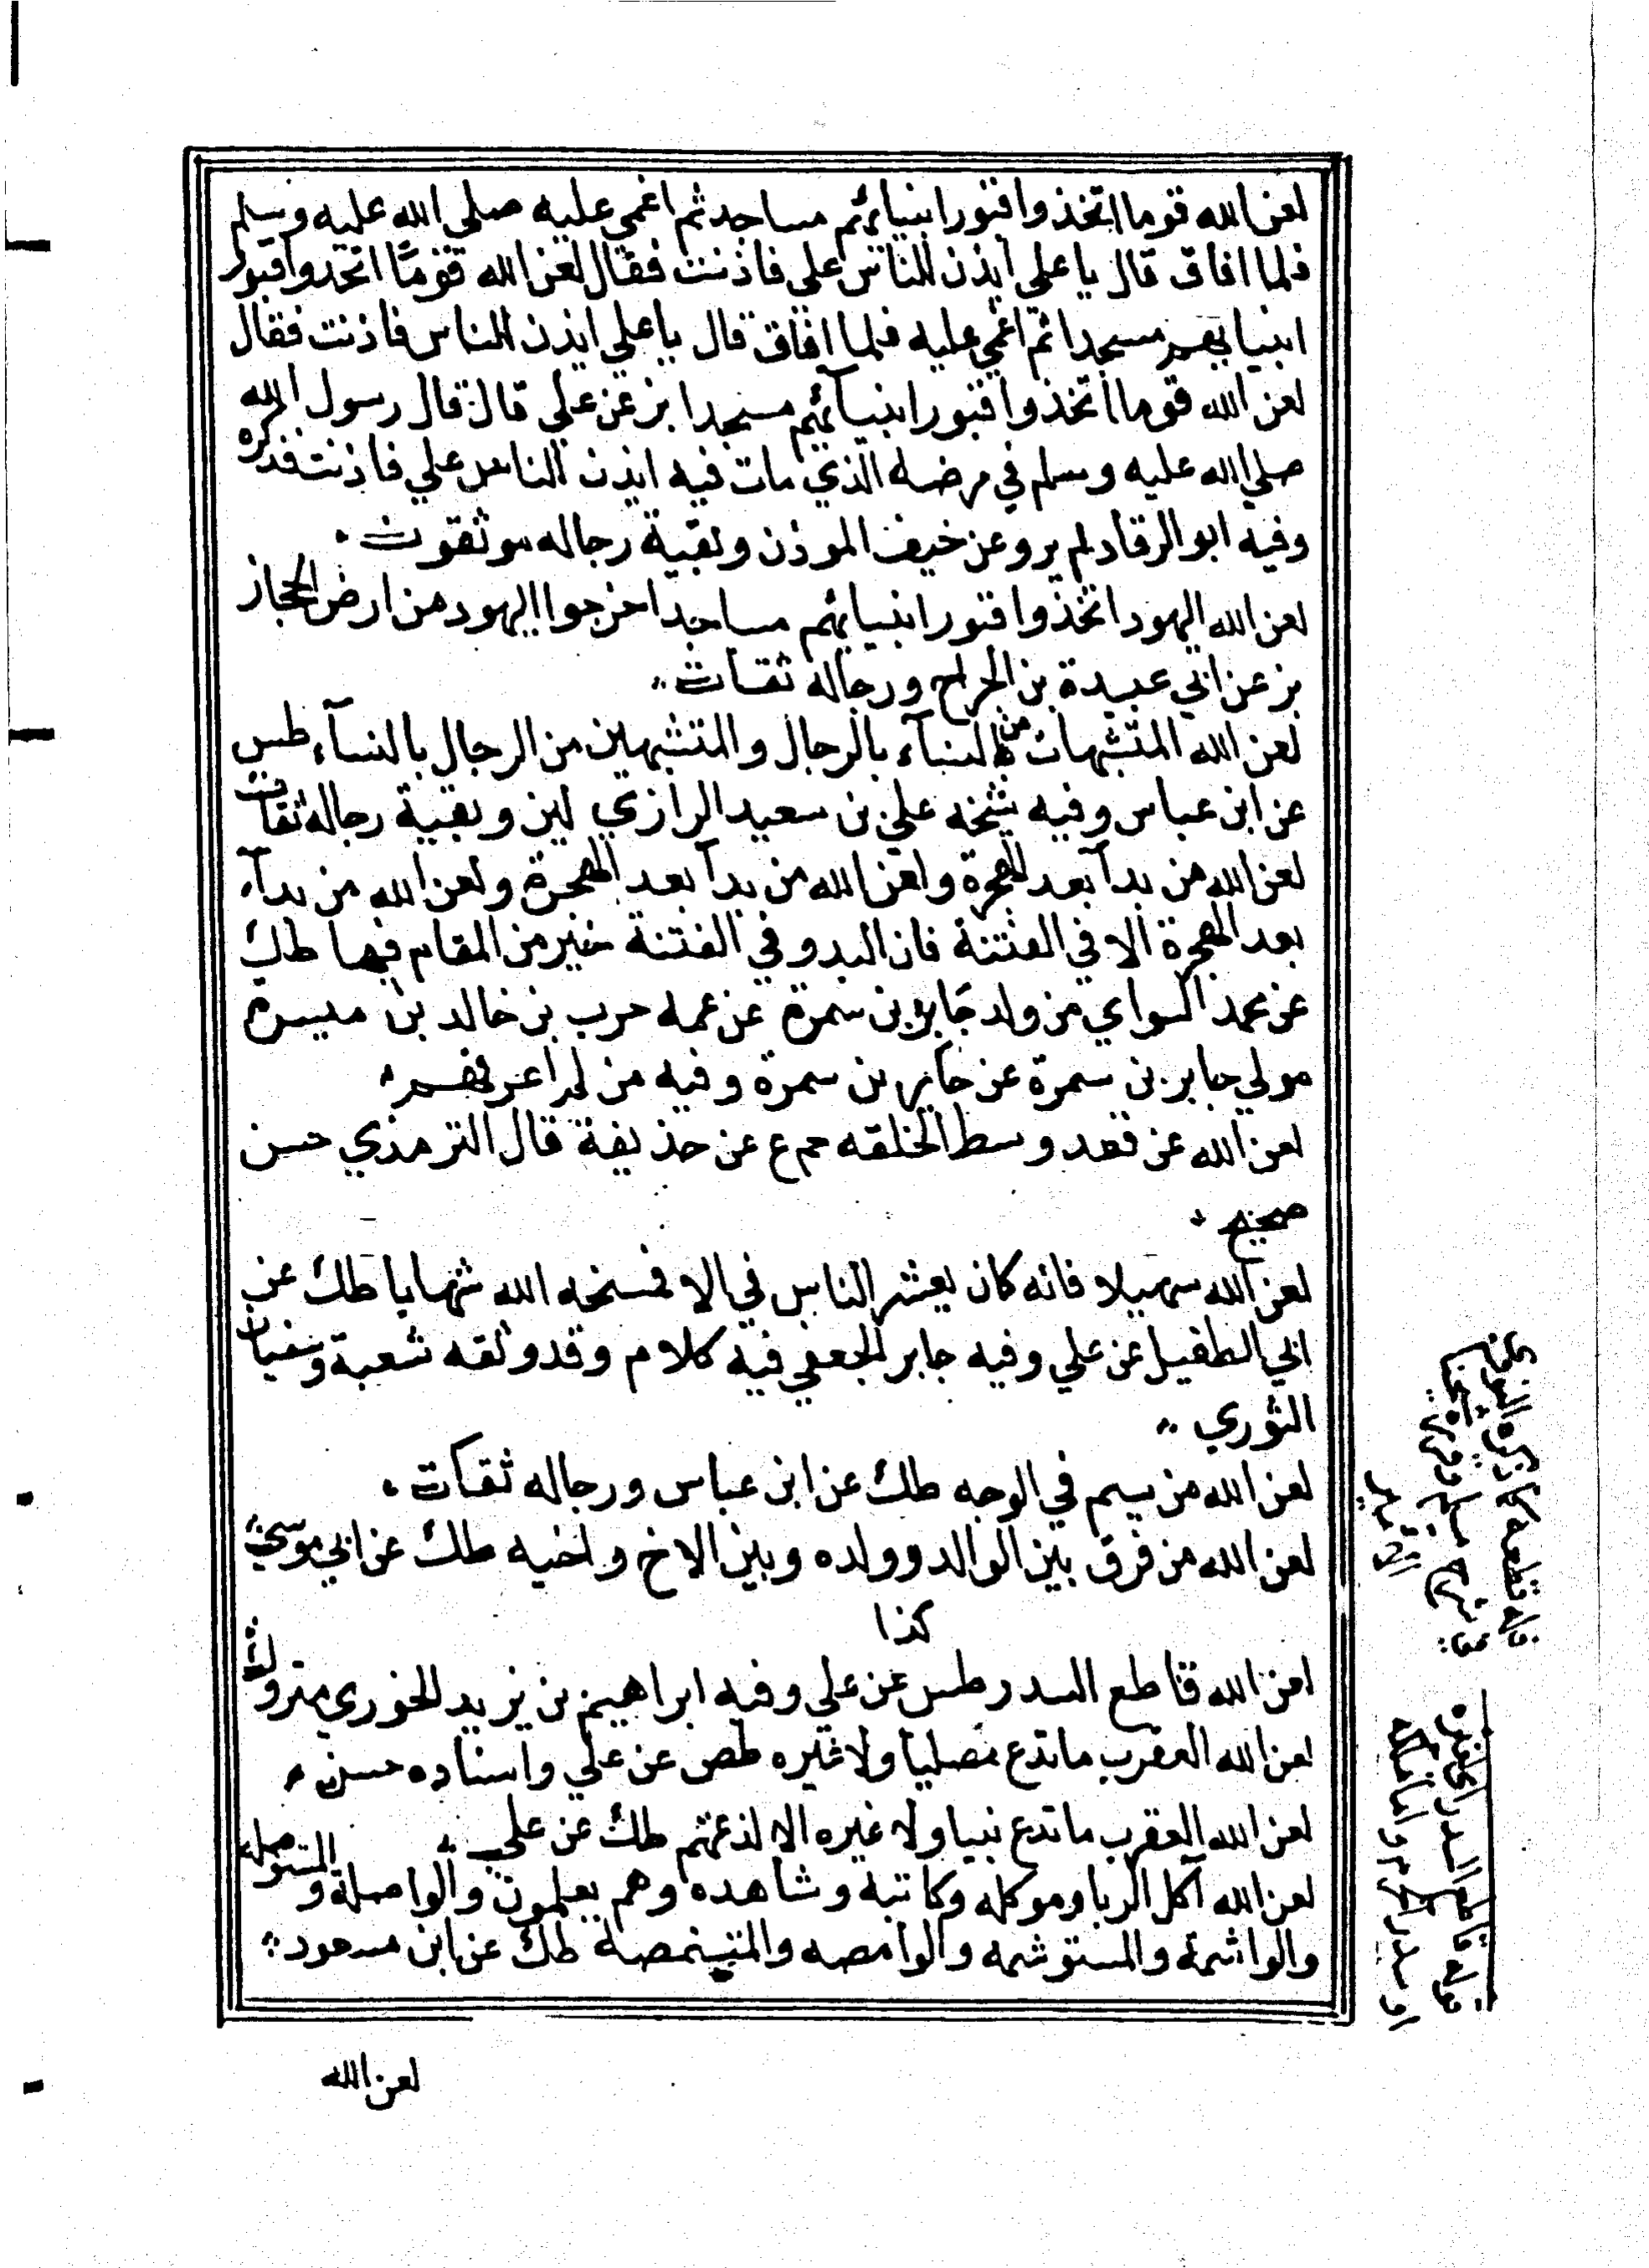 لعن الله قوما اتخذوا قبور انبيائهم مساجد ثم اغمي عليه صلي الله عليه وسلم
فلما افاق قال يا علي ايذن للناس علي فاذنت فقال لعن الله قوما اتخذوا قبور
انبيايهم مسجدا ثم اغمي عليه فلما افاق قال يا علي ايذن للناس فاذنت فقال
لعن الله قوما اتخذوا قبور انبيآئهم مسجدا بز عن علي قال قال رسول الله
صلي الله عليه وسلم في مرضه الذي مات فيه ايذن للناس علي فاذنت فذكره
وفيه ابو الرقاد لم يرو عن خيف الموذن وبقية رجاله موثقون
لعن الله اليهود اتخذوا قبور انبيائهم مساجد اخرجوا اليهود من ارض الحجاز
بز عن ابي عبيدة بن الجراح ورجاله ثقات
لعن الله المتشبهات من النسآء بالرجال والمتشبهين من الرجال بالنسآء طس
عن ابن عباس وفيه شيخه علي بن سعيد الرازي لين وبقية رجاله ثقات
لعن الله من بدآ بعد الهجرة ولعن الله من بدآ بعد الهجرة ولعن الله من بدآ
بعد الهجرة الا في الفتنة فان البدو في الفتنة خير من المقام فيها طك
عن محمد السواي من ولد جابر بن سمرة عن عمه حرب بن خالد بن ميسرة
مولي جابر بن سمرة عن جابر بن سمرة وفيه من لم اعرفهم
لعن الله عن قعد وسط الحلقه حم ع عن حذيفة قال الترمذي حسن
صحيح
لعن الله سهيلا فانه كان يعشر الناس في الا فمسخه الله شهابا طك عن
ابي الطفيل عن علي وفيه جابر الجعفي فيه كلام وقد وثقه شعبة وسفيان
الثوري
لعن الله من يسم في الوجه طك عن ابن عباس ورجاله ثقات
لعن الله من فرق بين الوالد وولده وبين الاخ واخيه طك عن ابي موسي
كذا
لعن الله قاطع السدر طس عن علي وفيه ابراهيم بن يزيد الخوري متروك
لعن الله العقرب ما تدع مصليا ولا غيره طص عن علي واسناده حسن
لعن الله العقرب ما تدع نبيا ولا غيره الا لذعتهم طك عن علي
لعن الله آكل الربا وموكله وكاتبه وشاهده وهم يعلمون والواصلة والمستوصلة
والواشمة والمستوشمه والوامصه والمتنمصة طك عن ابن مسعود
لعن الله
قوله قاطع السدر